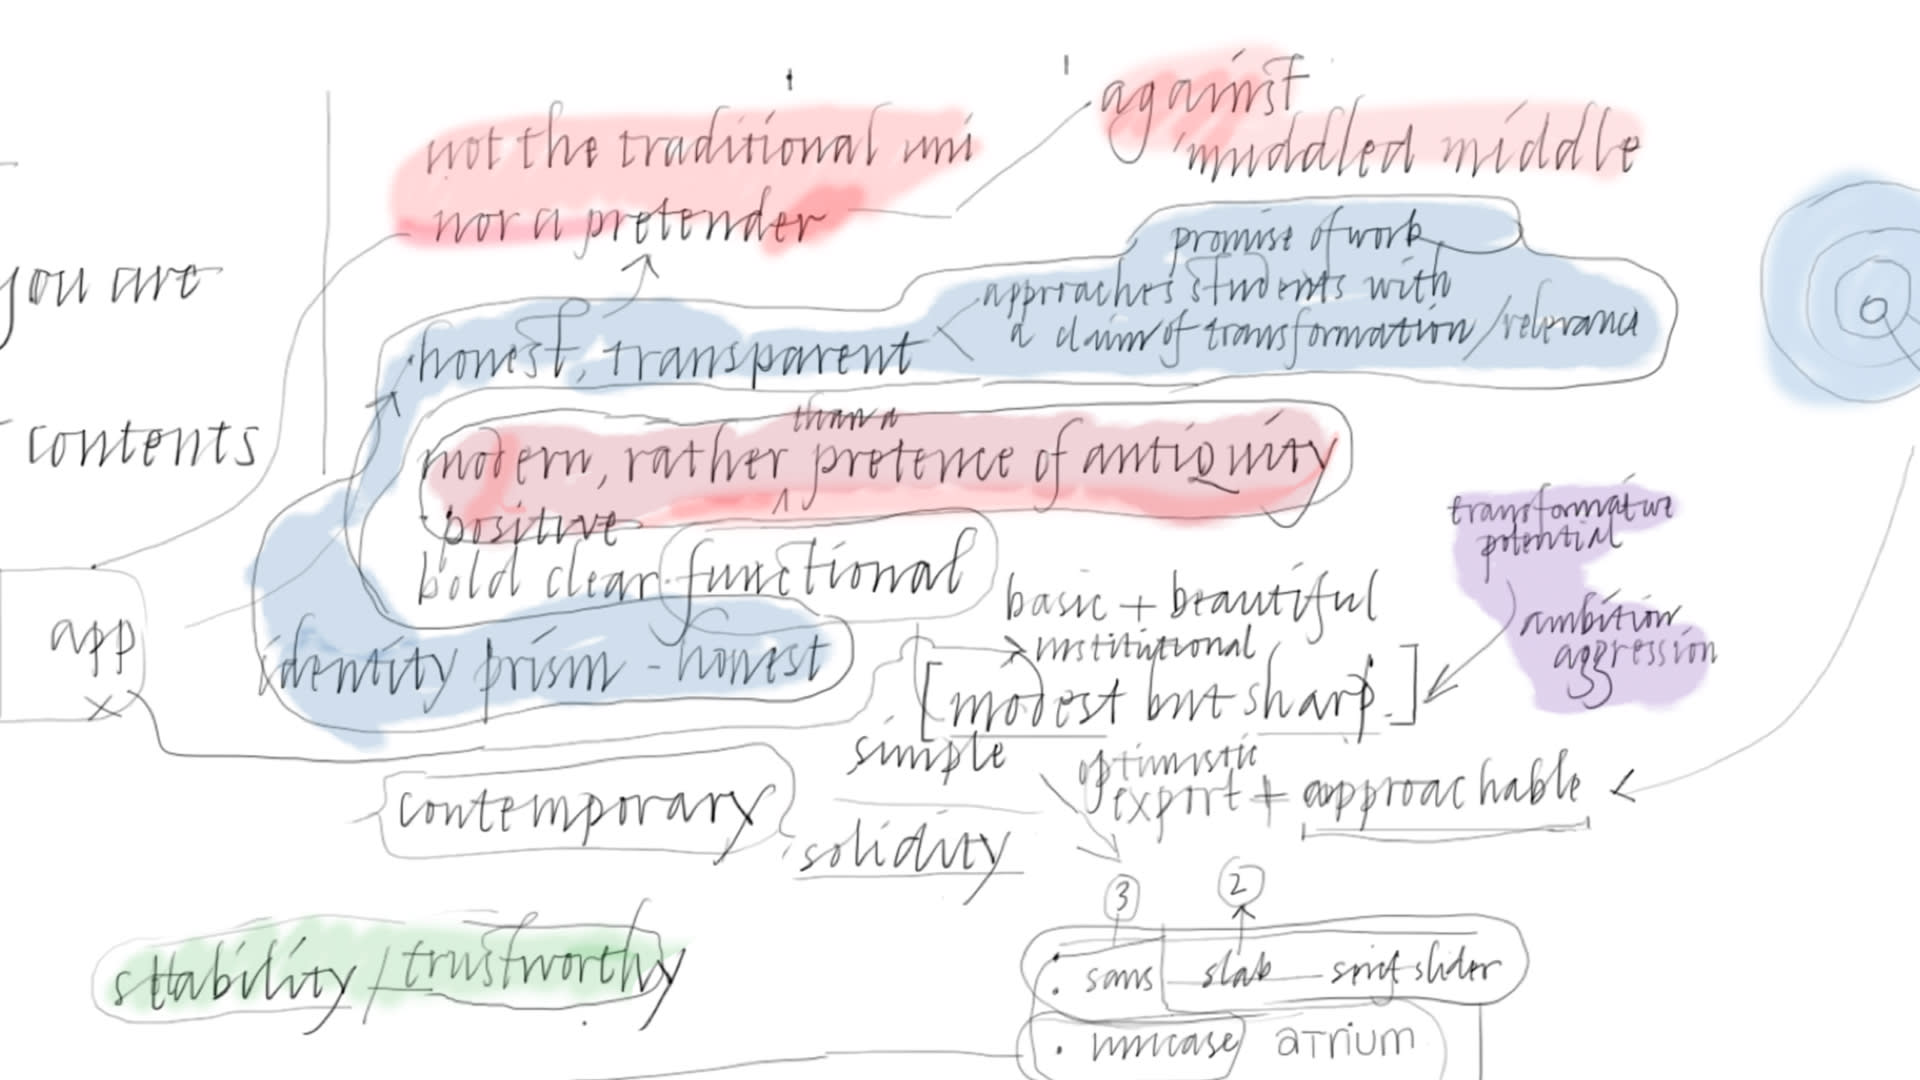 against
muddled middle
not the traditional uni
nor a pretender
promise of work
approaches students with
a claim of transformation/relevance
you are
honest, transparent
than a
modern, rather pretence of antiquity
contents
positive
bold clear functional
transformative
potential
basic + beautiful
institutional
ambition
aggression
app
identity prism - honest
[modest but sharp.]
simple
optimistic
expert + approachable
contemporary
solidity
3
2
stability / trustworthy
. sans slab serif slider
. unicase aTrium